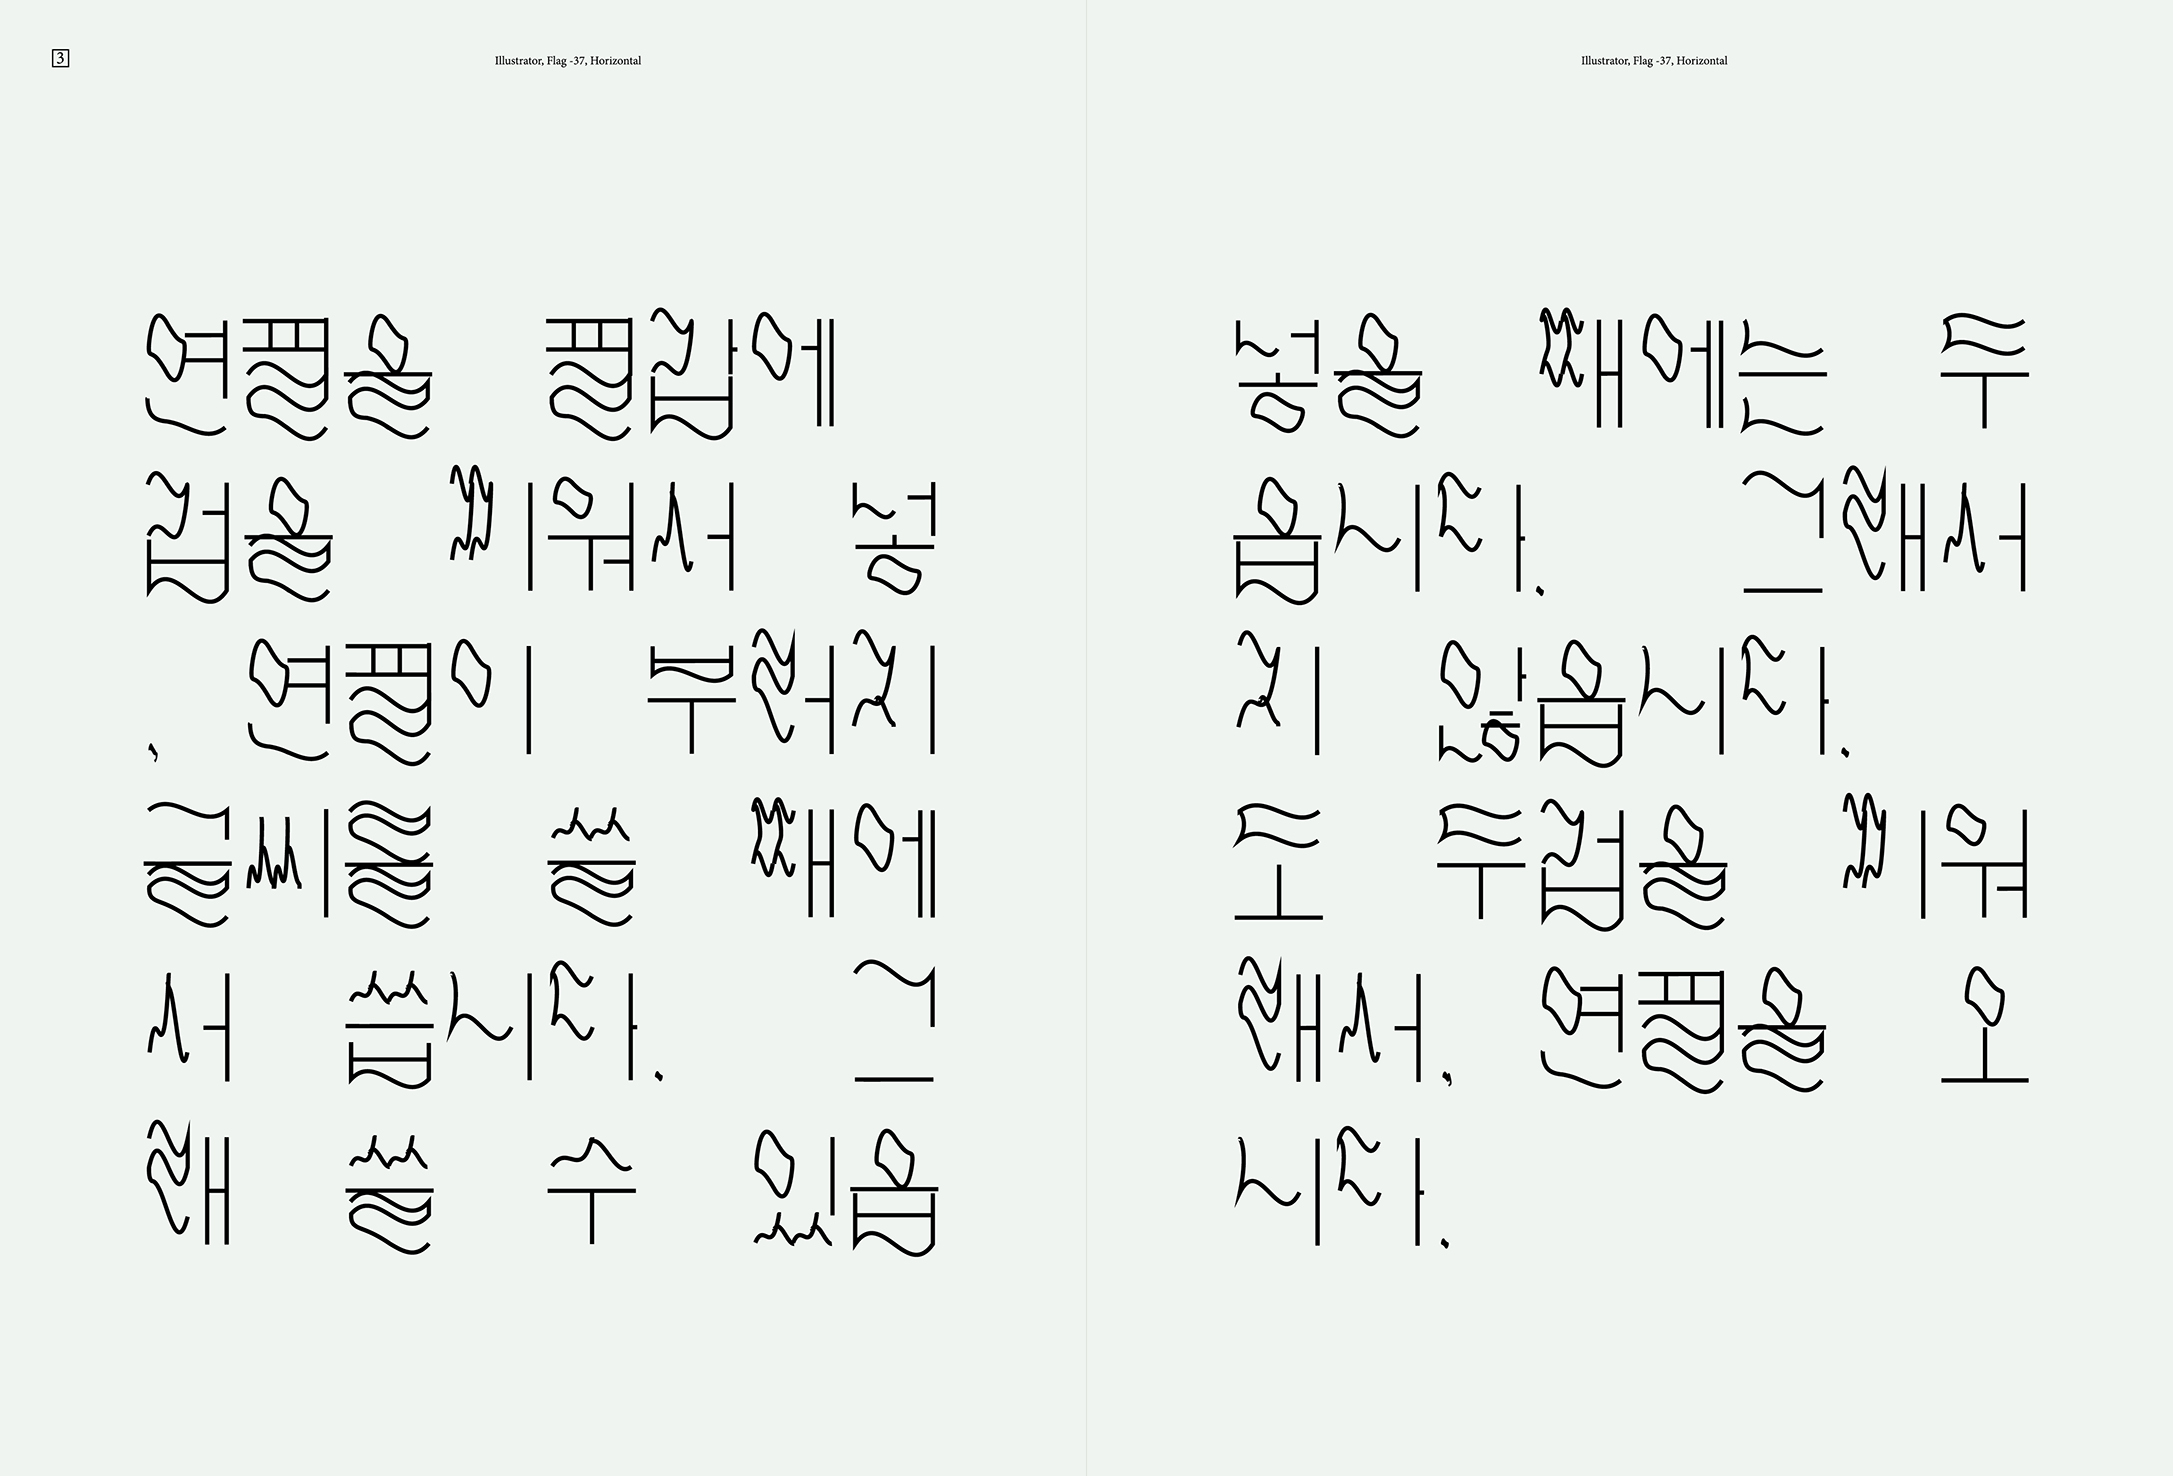 3
Illustrator, Flag -37, Horizontal
Illustrator, Flag -37, Horizontal
연필을 필갑에 넣을 때에는 두
겁을 끼워서 넣읍니다. 그래서
, 연필이 부러지지 않읍니다.
글씨를 쓸 때에도 두겁을 끼워
서 씁니다. 그래서, 연필을 오
래 쓸 수 있읍니다.